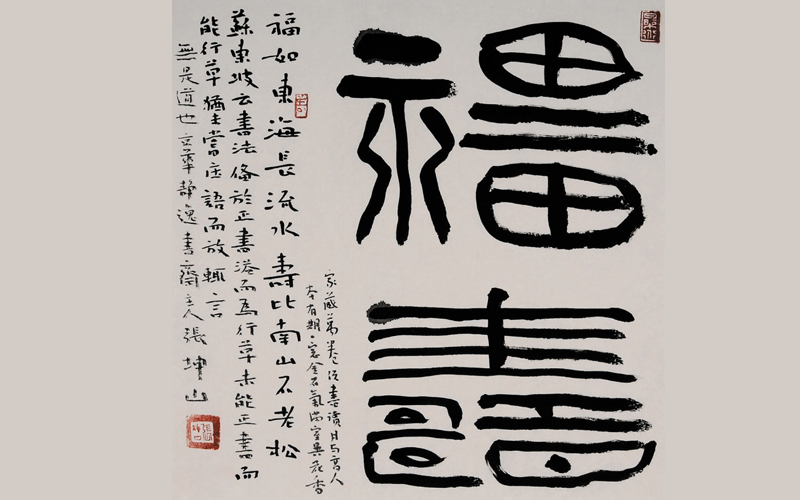 福壽
家藏萬卷書讀月与高人
本有期一窓金石氣滿室異花香
福如東海長流水壽比南山不老松
蘇東坡云書法備於正書溢而為行草未能正書而
能行草猶未嘗庄語而放輒言
無是道也靜逸書齋主人張坤山